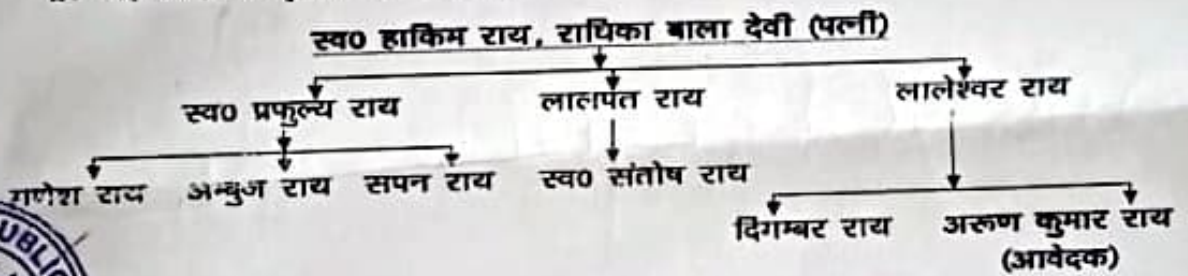 स्व0 हाकिम राय, राधिका बाला देवी (पत्नी)
स्व0 प्रफुल्य राय लालपंत राय लालेश्वर राय
गणेश राय अम्बुज राय सपन राय स्व0 संतोष राय
दिगम्बर राय अरूण कुमार राय
(आवेदक)
UBLIC